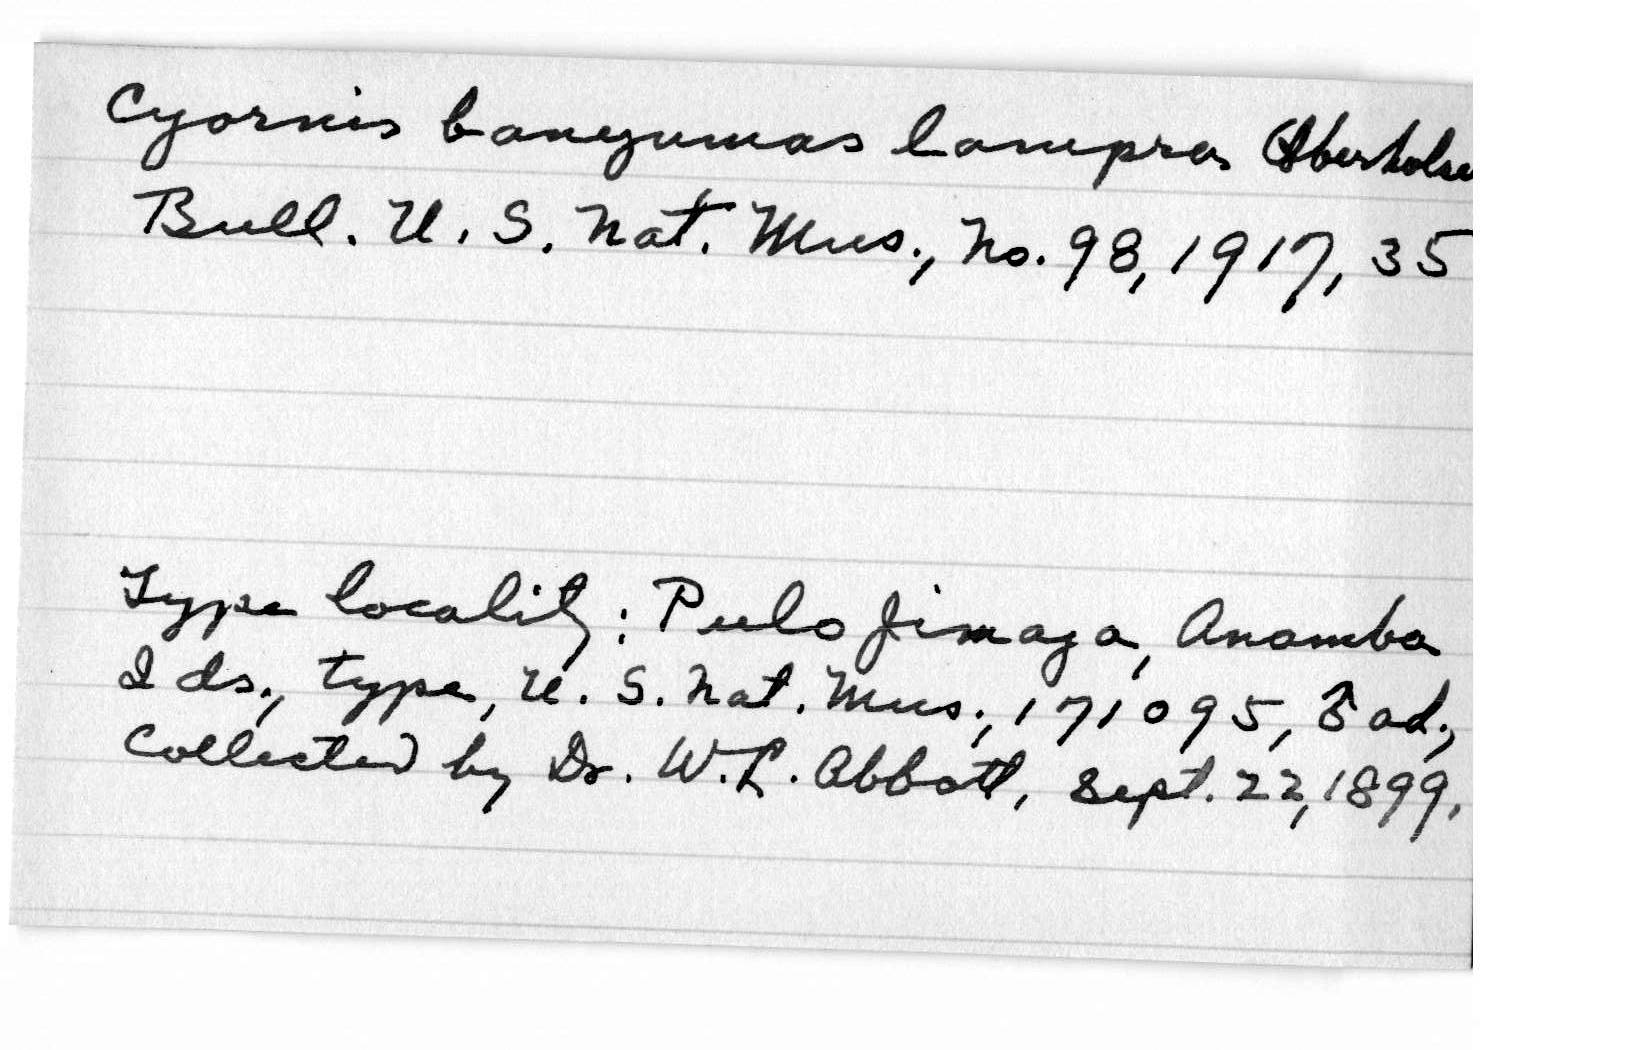 Cyornis banyumas lampra Oberholse
Bull. U. S. Nat. Mus., No. 98, 1917, 35
Type locality: Pulo Jimaja, Anamba
Ids., type, U. S. Nat. Mus., 171095, ♂ ad.,
Collected by Dr. W. L. Abbott, Sept. 22, 1899.